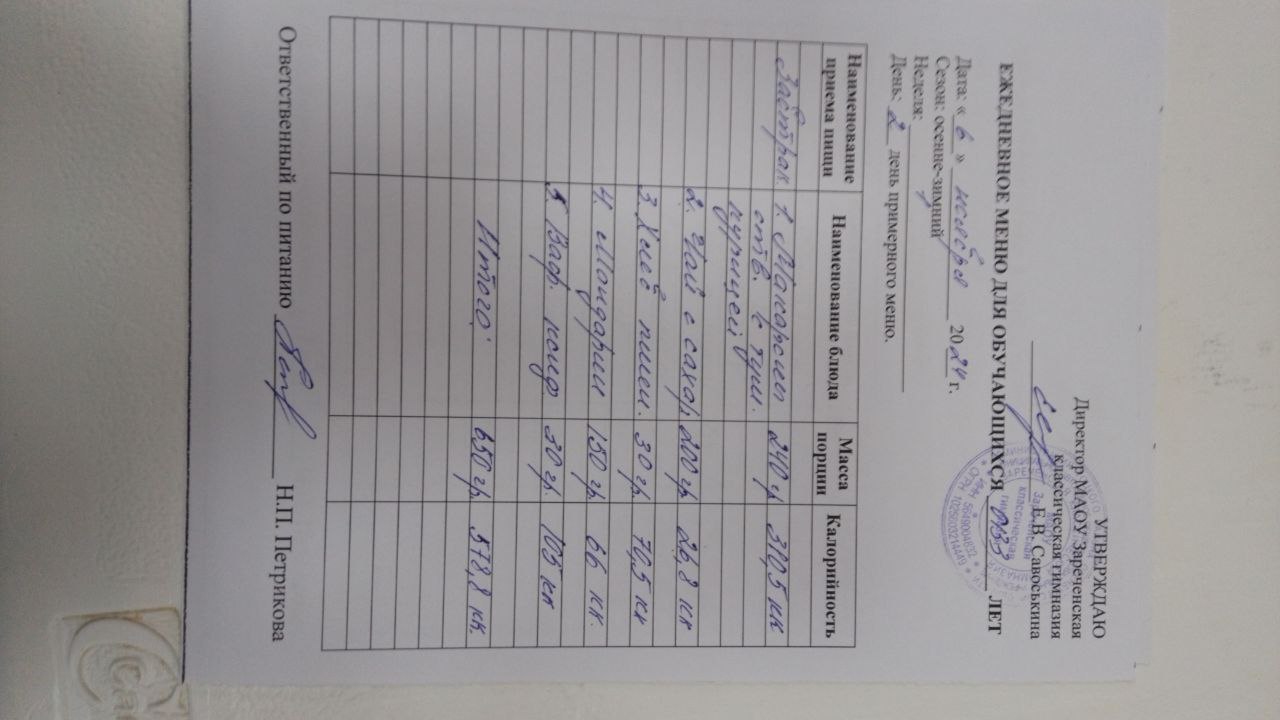 УТВЕРЖДАЮ
Директор МАОУ Зареченская
классическая гимназия
Е.В. Савоськина
ЕЖЕДНЕВНОЕ МЕНЮ ДЛЯ ОБУЧАЮЩИХСЯ ОВЗ ЛЕТ
Дата: « 6 » ноября 2024 г.
Сезон: осенне-зимний
Неделя:
День: 2 день примерного меню.
Наименование приема пищи Наименование блюда Масса порции Калорийность
Завтрак 1. Макароны 240 гр 310,5 кк
отв. с туш.
курицей
2. Чай с сахар. 200 гр 26,8 кк
3. Хлеб пшен. 30 гр 70,5 кк
4. Мандарин 150 гр 66 кк.
5. Ваф. конд. 30 гр. 105 кк
Итого: 650 гр. 578,8 кк.
Ответственный по питанию Н.П. Петрикова